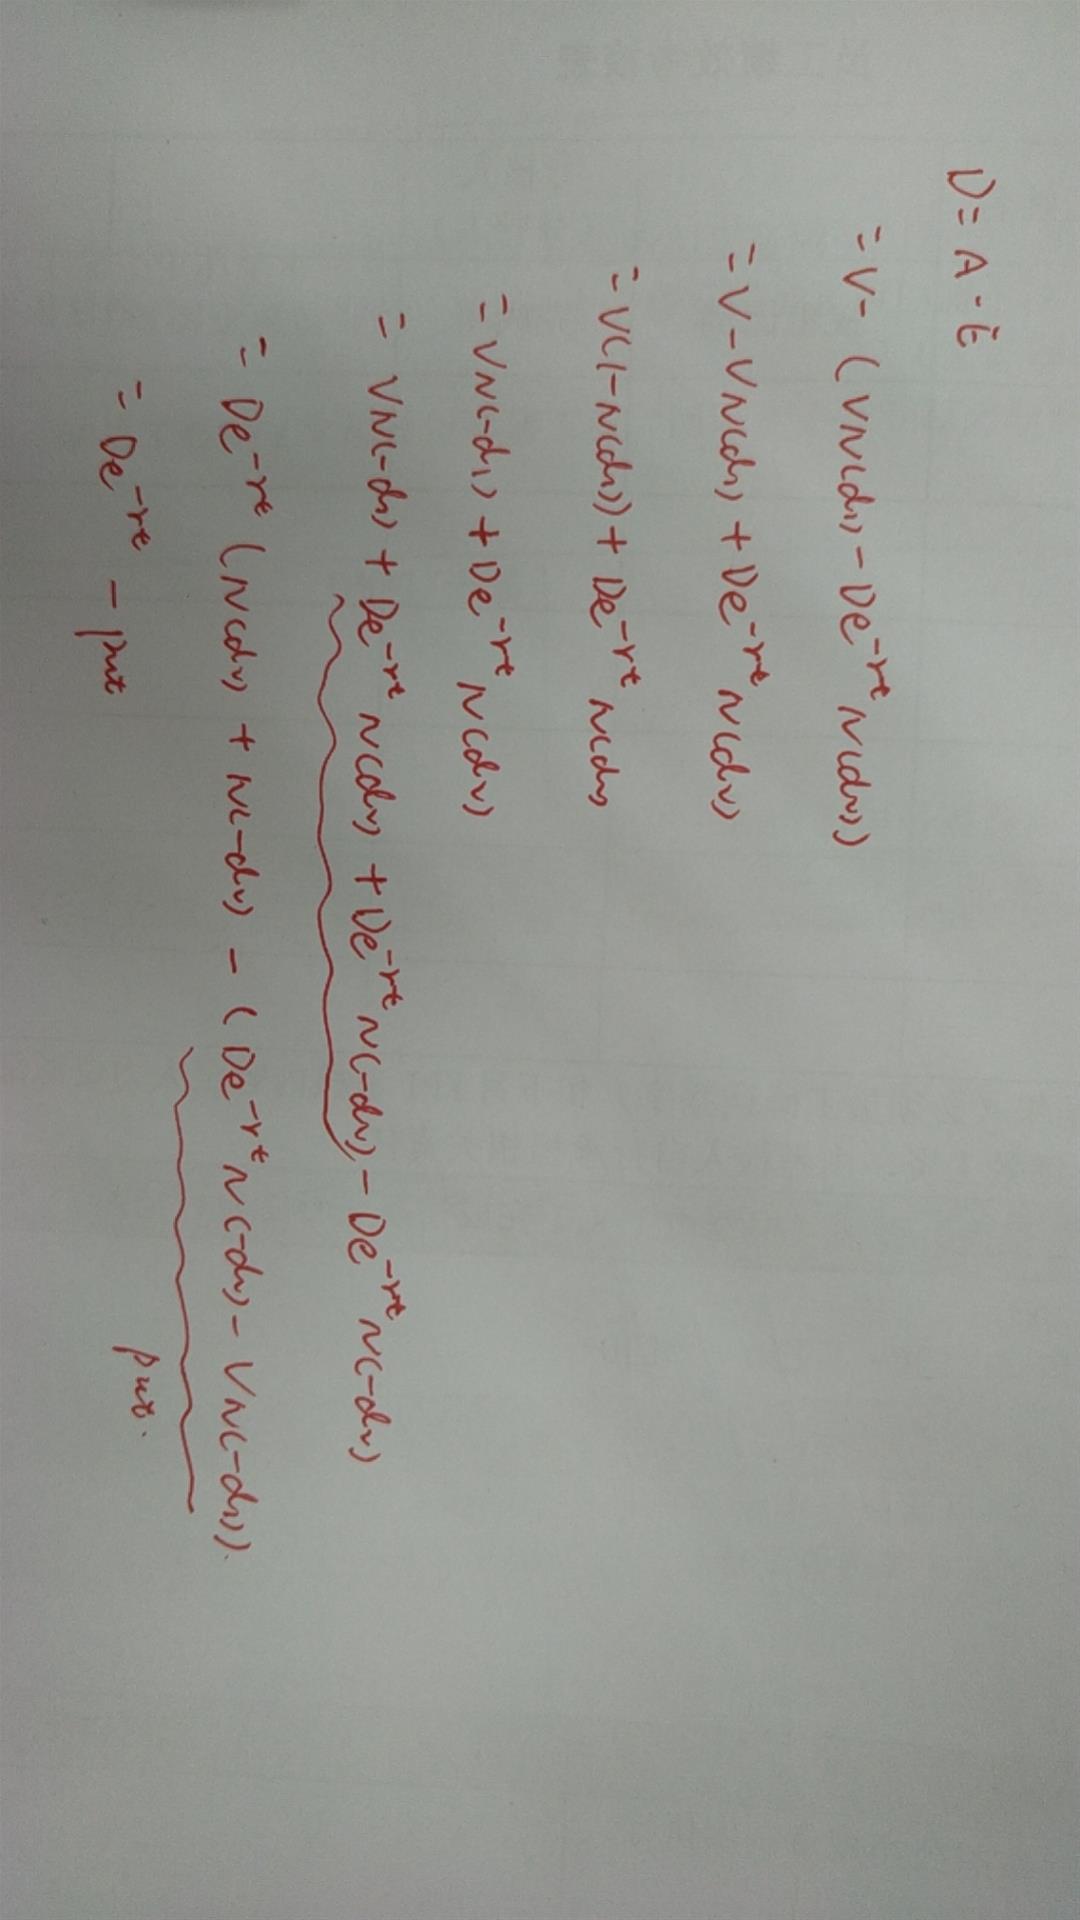 D = A - E
= V - (VN(d1) - De^-rt N(d2))
= V - VN(d1) + De^-rt N(d2)
= V(1 - N(d1)) + De^-rt N(d2)
= VN(-d1) + De^-rt N(d2)
= VN(-d1) + De^-rt N(d2) + De^-rt N(-d2) - De^-rt N(-d2)
= De^-rt (N(d2) + N(-d2) - (De^-rt N(-d2) - VN(-d1)).
put.
= De^-rt - put